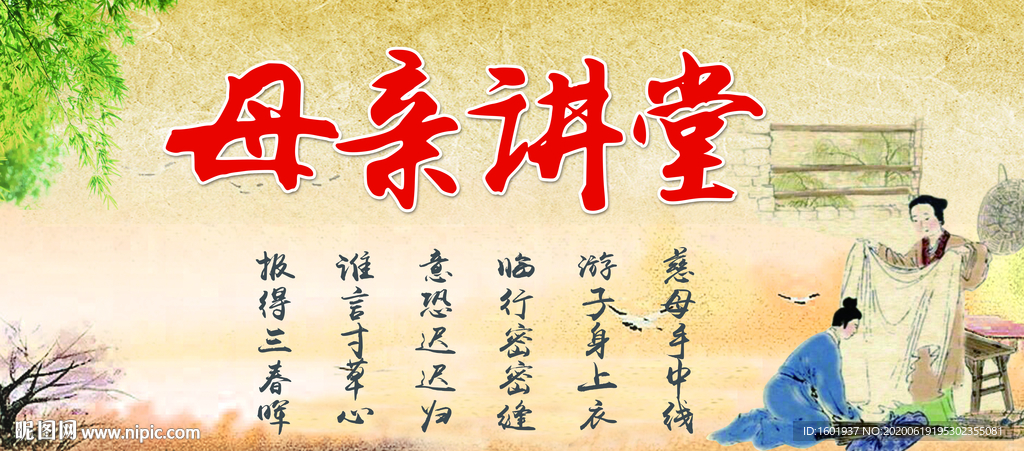 母亲讲堂
慈母手中线
游子身上衣
临行密密缝
意恐迟迟归
谁言寸草心
报得三春晖
昵图网 www.nipic.com
ID:1601937 NO:20200619195302355081